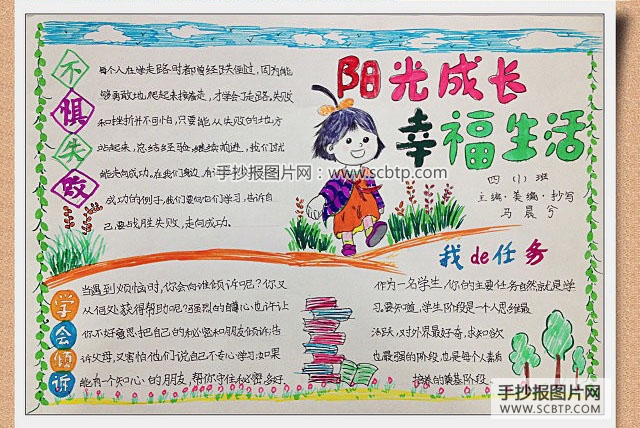 阳光成长
幸福生活
四（1）班
主编·美编·抄写
马晨兮
不惧失败
每个人在学走路时都曾经跌倒过，因为能
够勇敢地爬起来接着走，才学会了走路。失败
和挫折并不可怕，只要能从失败的地方
站起来，总结经验，继续前进，我们就
能走向成功。在我们身边，有
成功的例子，我们要向他们学习，告诉自
己要战胜失败，走向成功。
手抄报图片网：www.scbtp.com
我de任务
作为一名学生，你的主要任务自然就是学
习。要知道，学生阶段是一个人思维最
活跃，对外界最好奇，求知欲
也最强的阶段，也是每个人素质
培养的奠基阶段
学会倾诉
当遇到烦恼时，你会向谁倾诉呢？你又
从何处获得帮助呢？强烈的自尊心也许让
你不好意思把自己的秘密和朋友倾诉；告
诉父母，又害怕他们说自己不专心学习；如果
能有个知心的朋友，帮你守住秘密，多好
手抄报图片网
WWW.SCBTP.COM